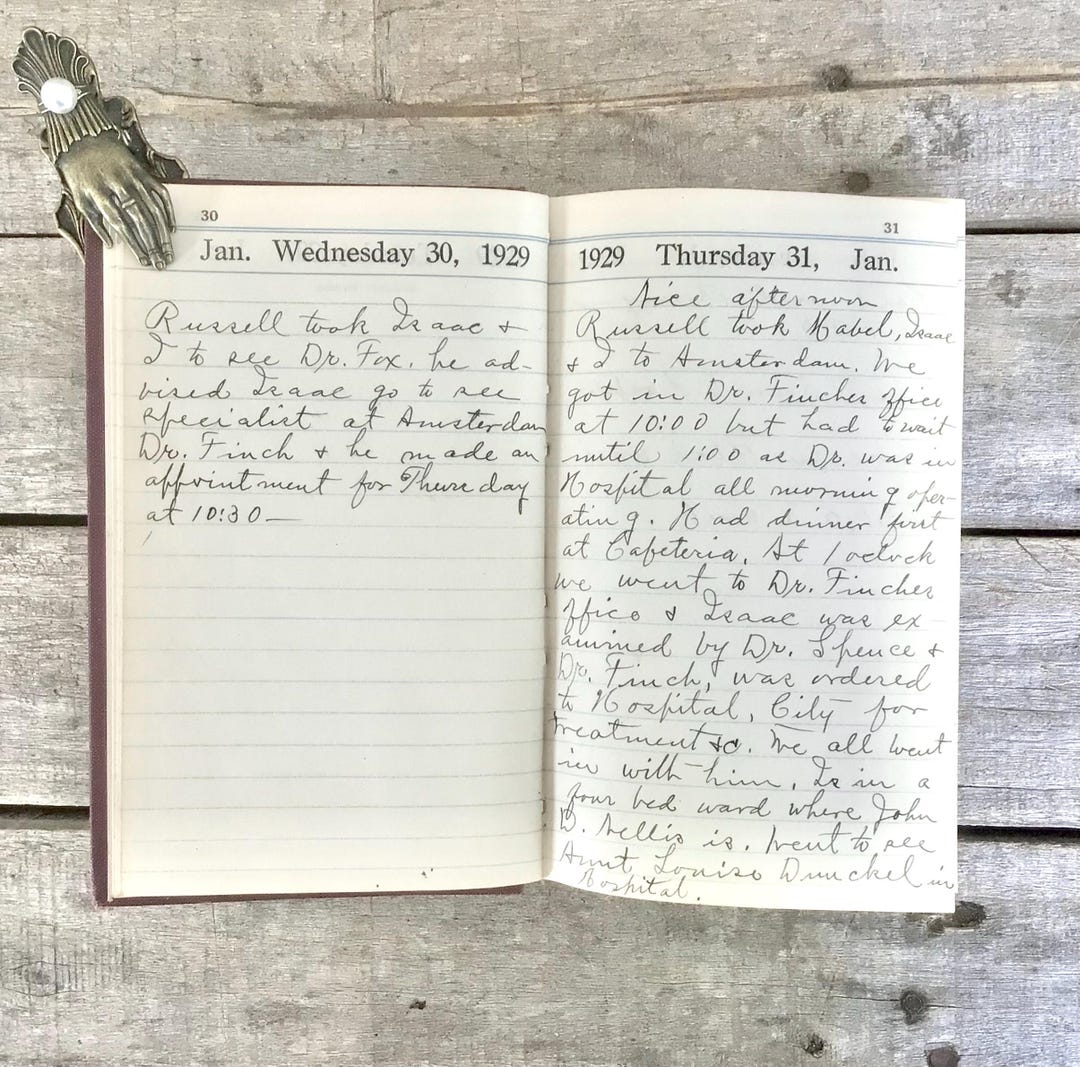 30
Jan. Wednesday 30, 1929
Russell took Isaac &
I to see Dr. Fox. he ad-
vised Isaac go to see
specialist at Amsterdam
Dr. Finch & he made an
appointment for Thursday
at 10:30—
31
1929 Thursday 31, Jan.
Nice afternoon
Russell took Mabel, Isaac
& I to Amsterdam. We
got in Dr. Finches office
at 10:00 but had to wait
until 1:00 as Dr. was in
Hospital all morning oper-
ating. Had dinner first
at Cafeteria. At 1 oclock
we went to Dr. Finches
office & Isaac was ex
amined by Dr. Spence &
Dr. Finch, was ordered
to Hospital, City for
treatment &c. We all went
in with him. Is in a
four bed ward where John
D. Nellis is. Went to see
Aunt Louise Dunckel in
Hospital.